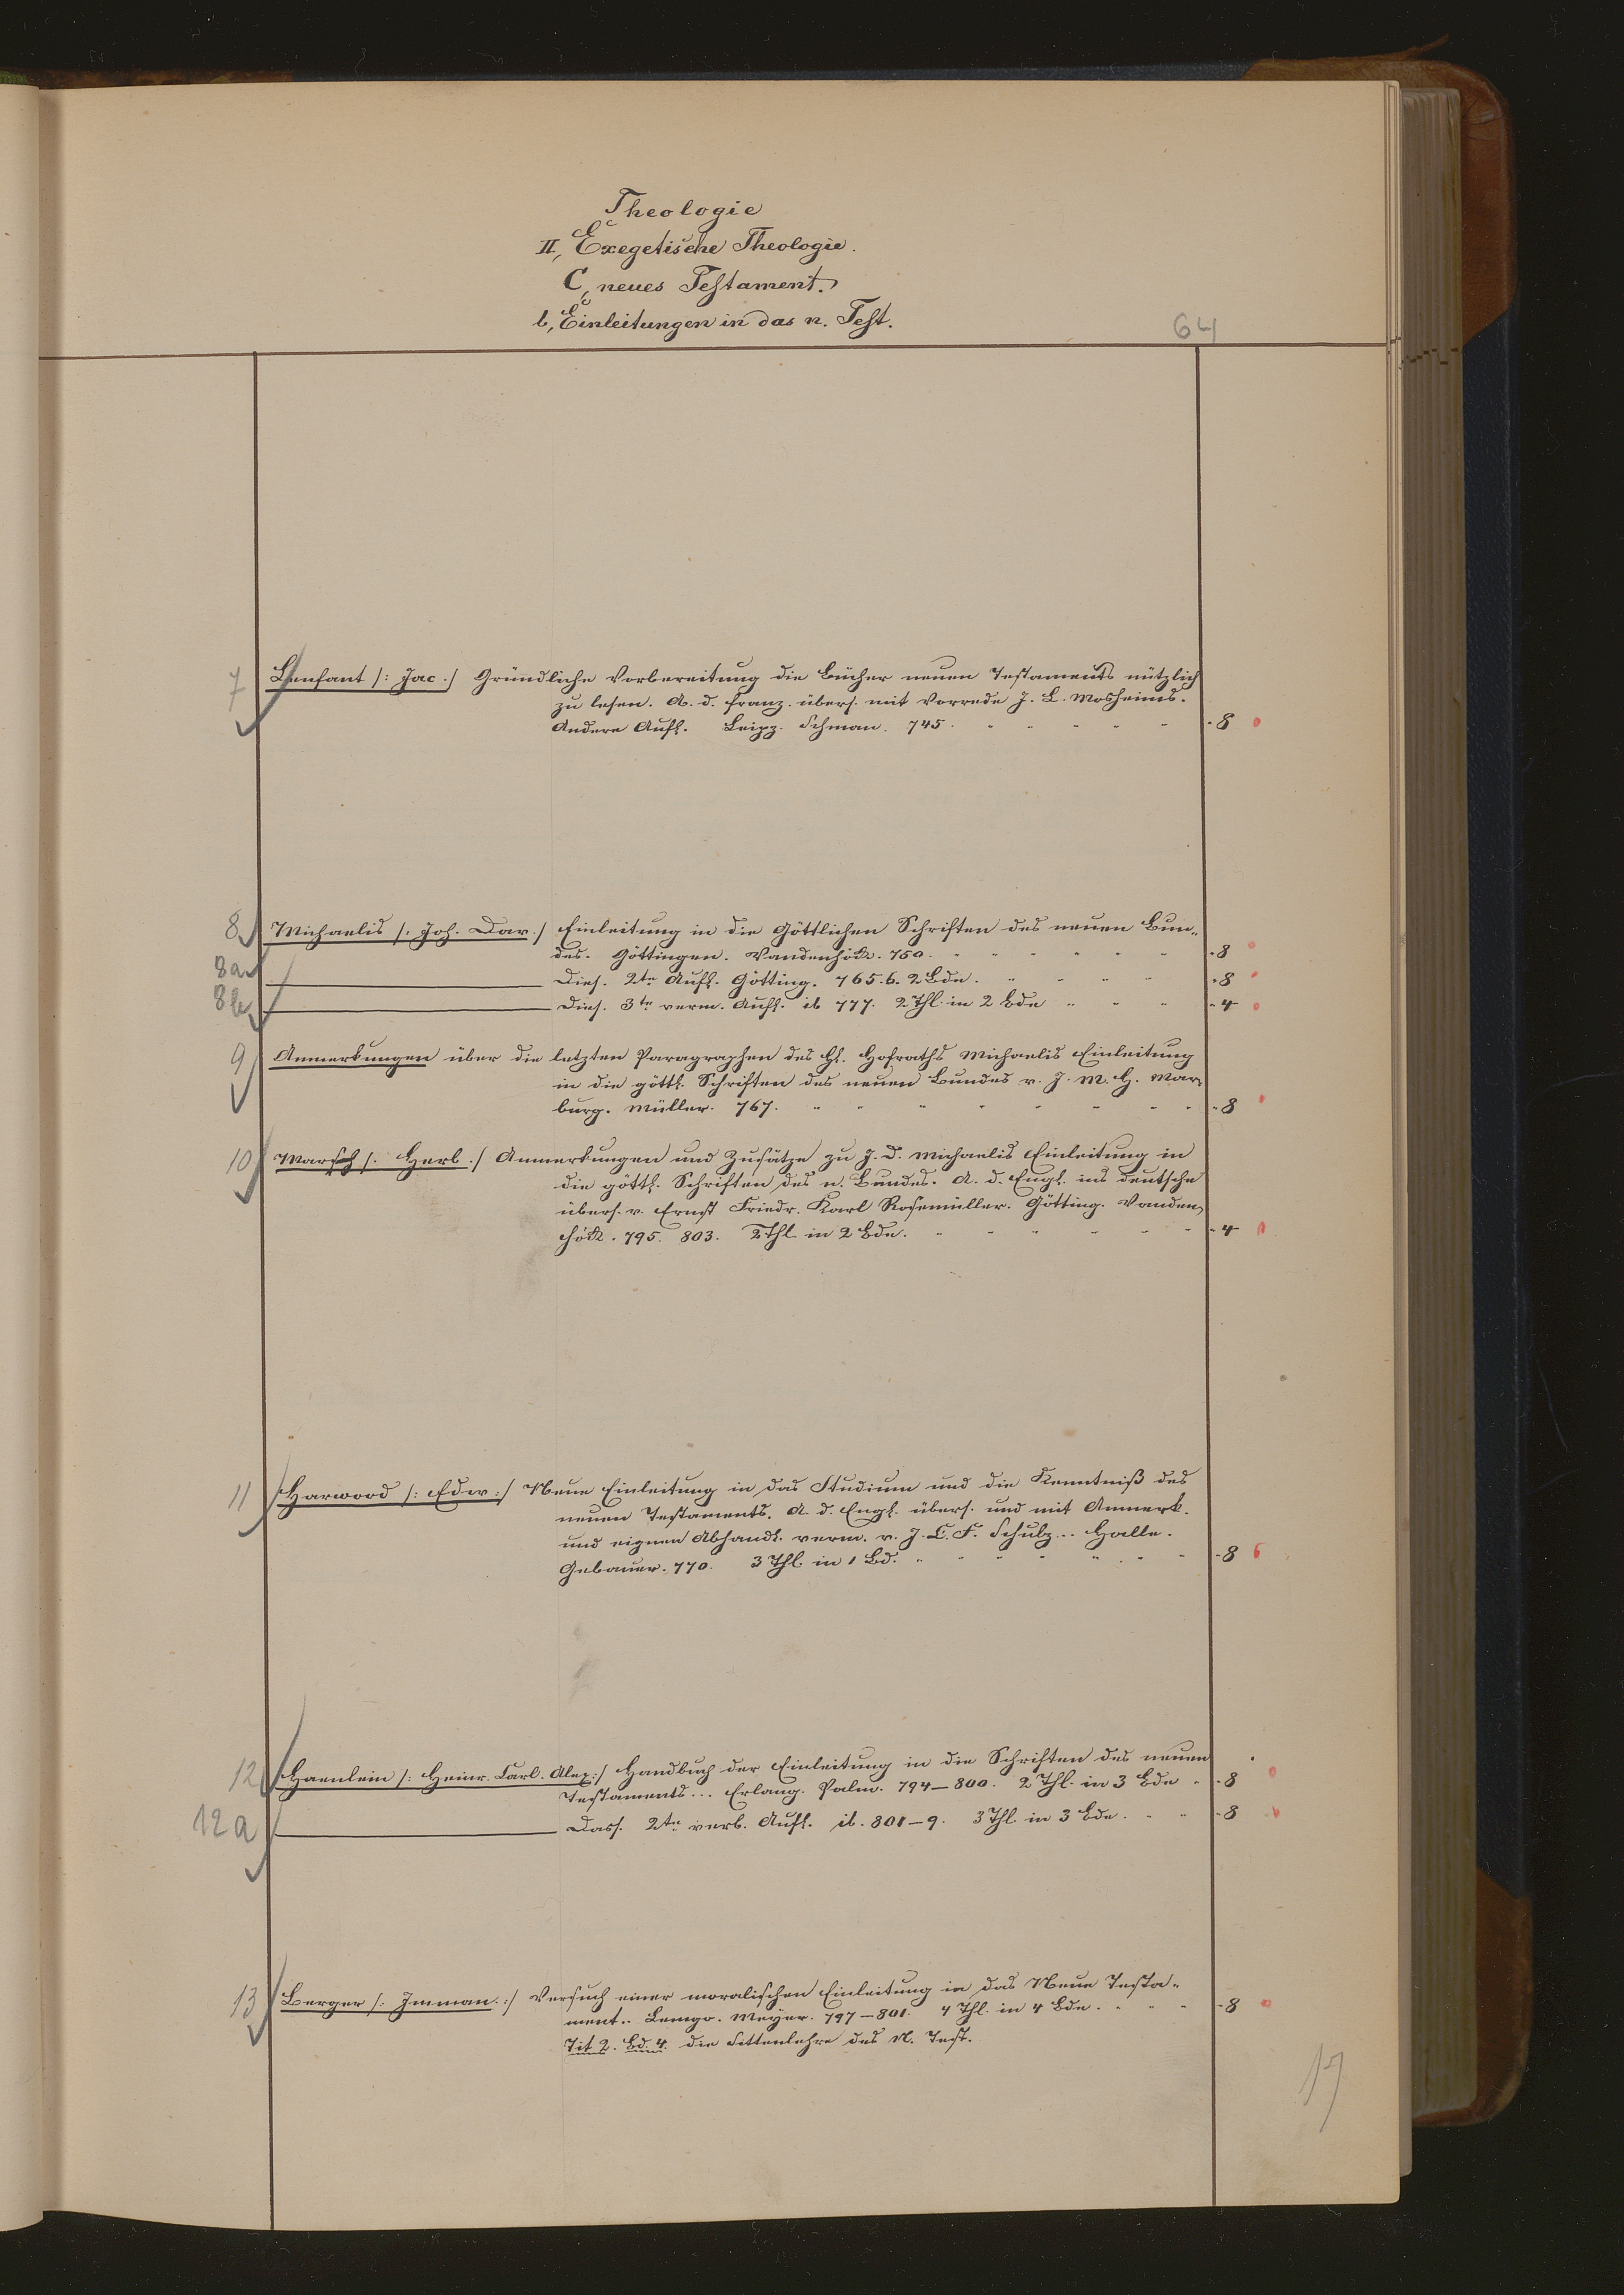 Theologie
II, Exegetische Theologie.
C, neues Testament.
b, Einleitungen in das n. Test.
64
7 Lenfant /: Jac :/ Gründliche Vorbereitung die Bücher neuen Testaments nützlich
zu lesen. A. d. franz. übers. mit Vorrede J. L. Mosheims.
Andere Aufl. Leipz. 745. - 8
8 Michaelis /: Joh. Dav :/ Einleitung in die Göttlichen Schriften des neuen Bun-
des. Göttingen. Vandenhöck. 750. - 8
8a Dies. 2te Aufl. Götting. 765.6. 2 Bde. - 8
8b Dies. 3te verm. Aufl. ib 777. 2 Thl. in 2 Bde - 4
9 Anmerkungen über die letzten Paragraphen des H. Hofraths Michaelis Einleitung
in die göttl. Schriften des neuen Bundes v. J. M. H. Mar-
burg. Müller. 767. - 8
10 Marsch /: Herb :/ Anmerkungen und Zusätze zu J. D. Michaelis Einleitung in
die göttl. Schriften des n. Bundes. A. d. Engl. ins deutsche
übers. v. Ernst Friedr. Karl Rosenmüller. Götting. Vanden-
höck. 795. 803. 2 Thl. in 2 Bde. - 4
11 Harwood /: Edw :/ Neue Einleitung in das Studium und die Kenntniß des
neuen Testaments. A. d. Engl. übers. und mit Anmerk.
und eignen Abhandl. verm. v. J. C. F. Schulz... Halle.
Gebauer. 770. 3 Thl. in 1 Bd. - 8
12 Haenlein /: Heinr. Carl. Alex :/ Handbuch der Einleitung in die Schriften des neuen
Testaments... Erlang. Palm. 794–800. 2 Thl. in 3 Bde - 8
12a Dass. 2te verb. Aufl. ib. 801–9. 3 Thl. in 3 Bde. - 8
13 Berger /: Imman. :/ Versuch einer moralischen Einleitung in das Neue Testa-
ment.. Lemgo. Meyer. 797–801. 4 Thl. in 4 Bde. - 8
Tit 2. Bd. 4. die Sittenlehre des N. Test.